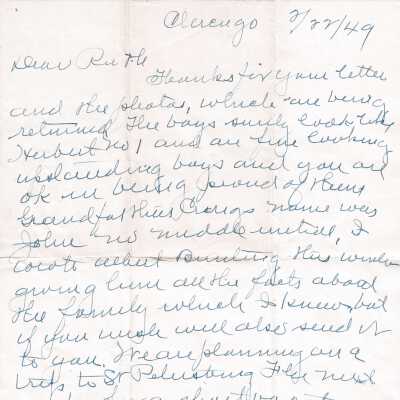 Chicago 2/22/49
Dear Ruth
Thanks for your letter
and the photos, which are being
returned. The boys surely look like
Herbert No 1 and are fine looking
upstanding boys and you are
OK in being proud of them
Grandfather Craigs name was
John no middle initial, I
wrote Albert Bunting this week
giving him all the facts about
the family which I knew, but
if you wish will also send it
to you. We are planning on a
trip to St Petersburg Fla next